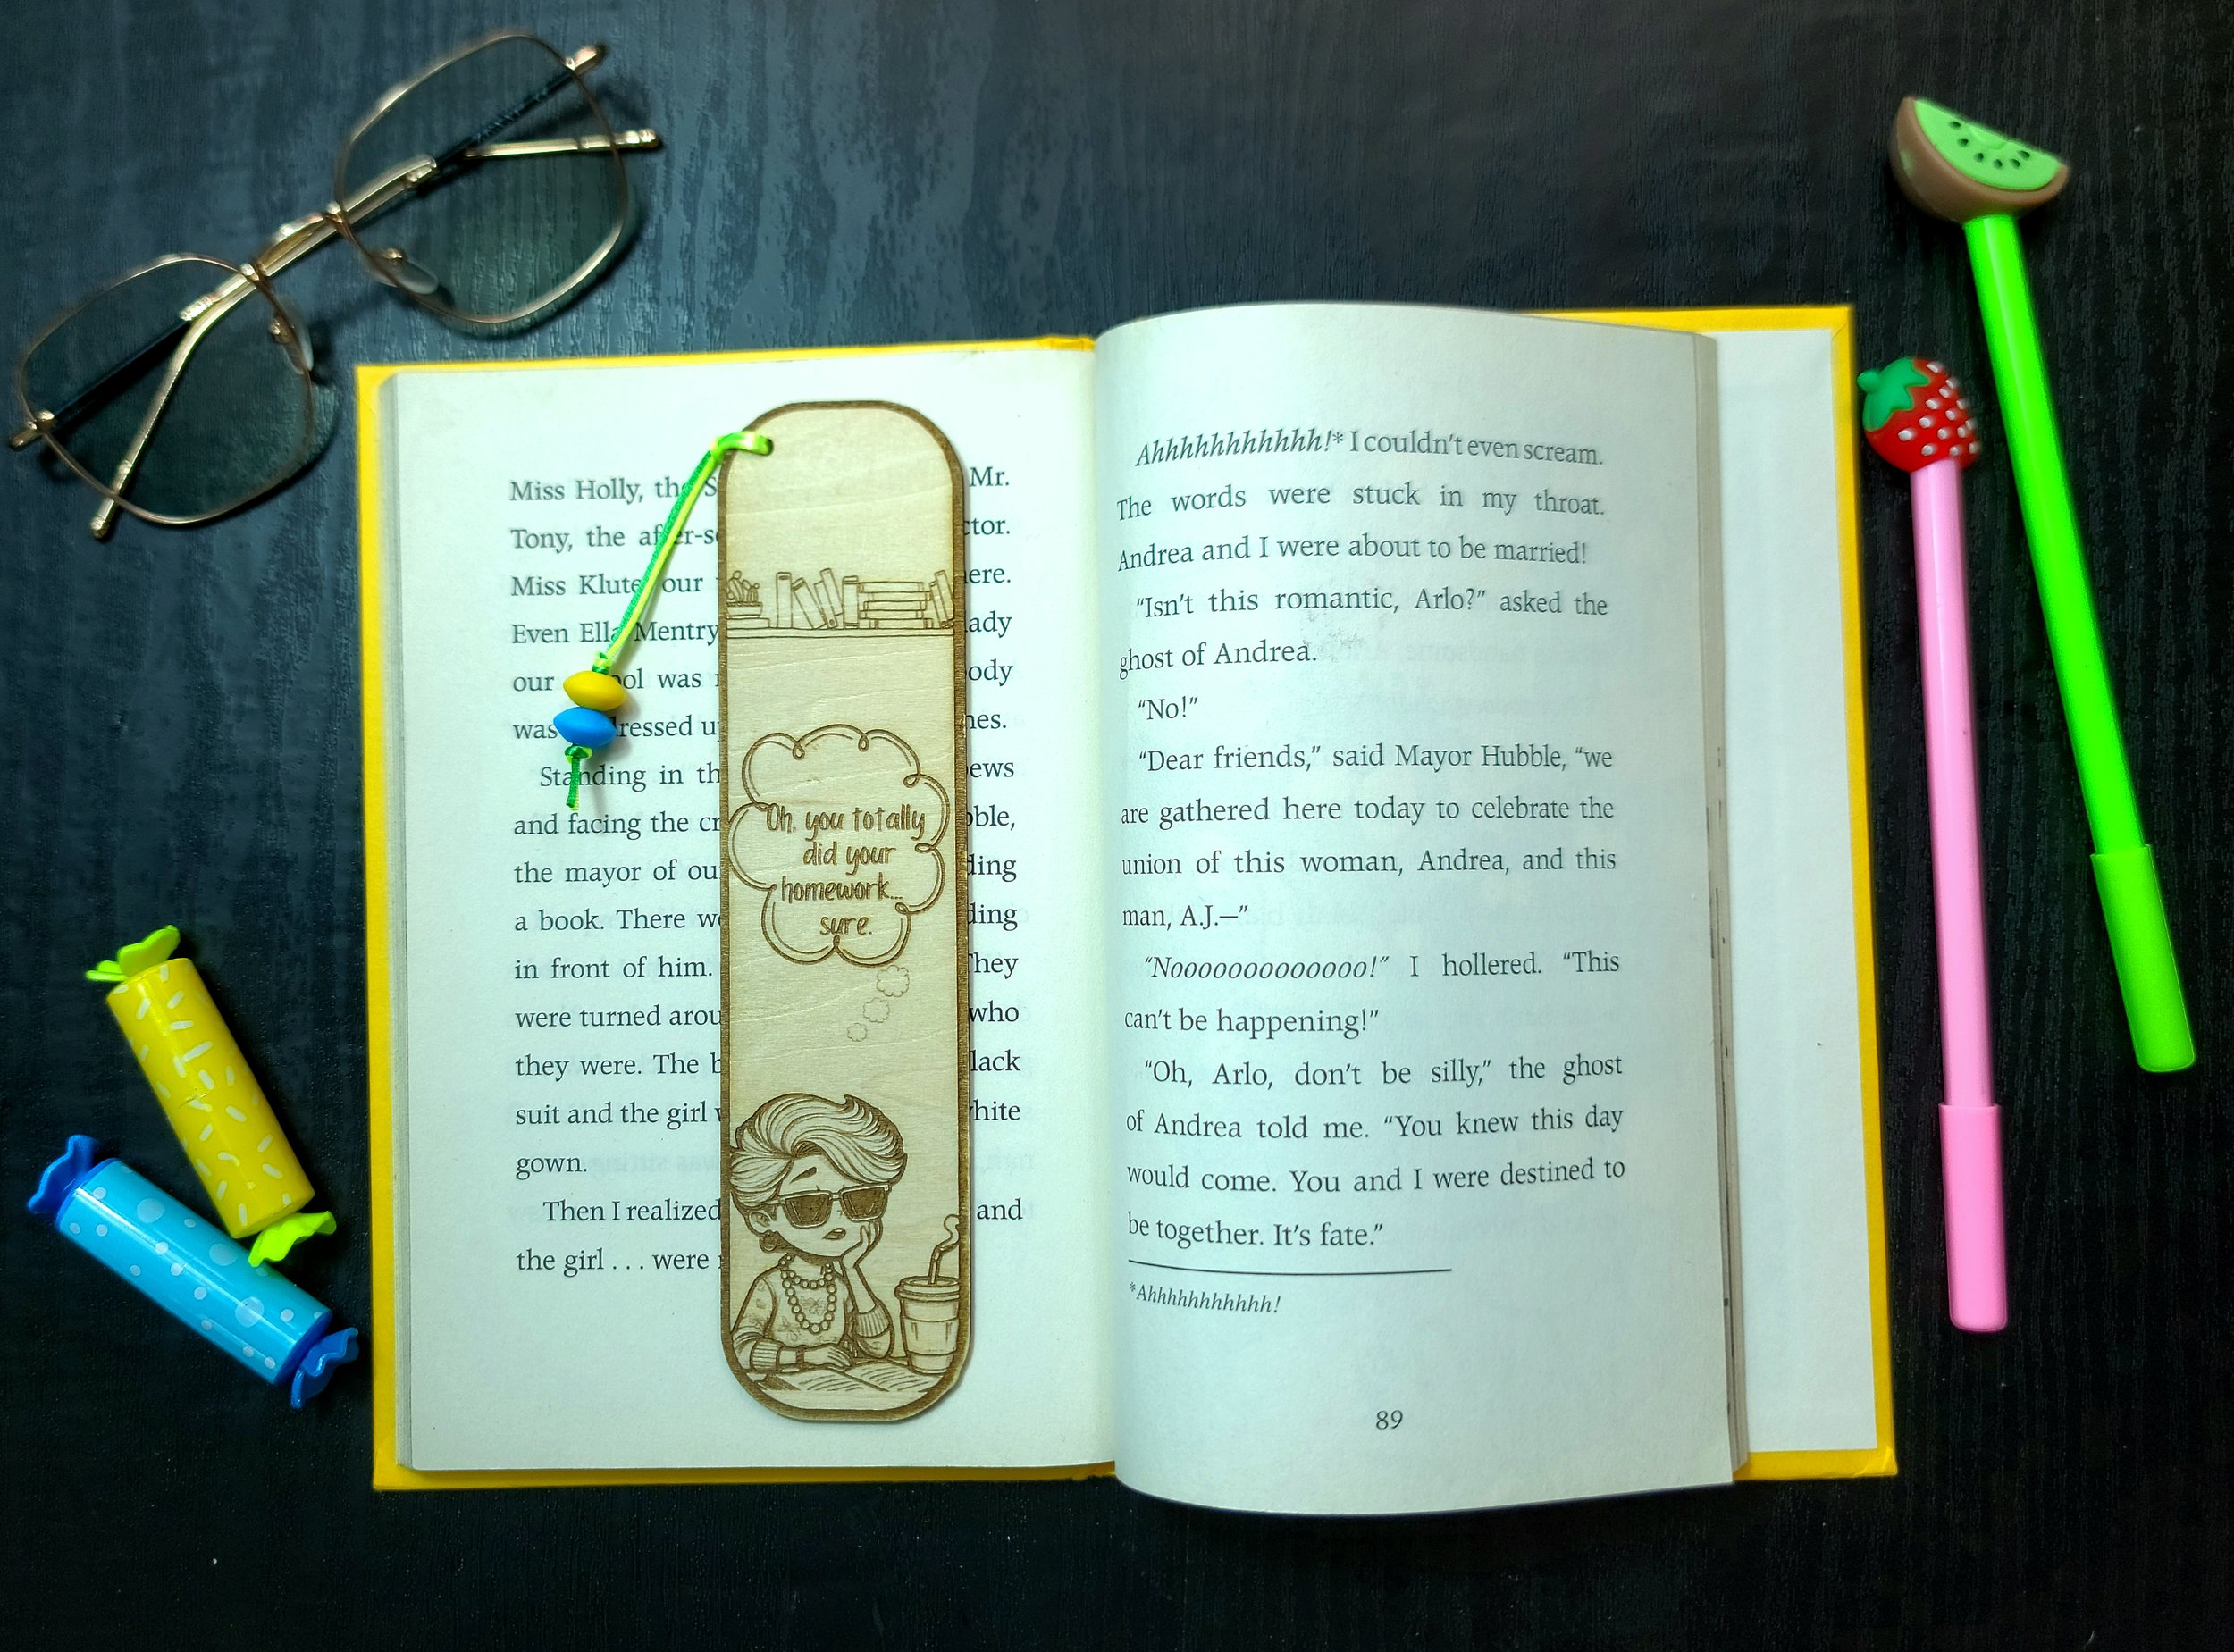 Miss Holly, the S Mr.
Tony, the after-s ctor.
Miss Klute, our ere.
Even Ella Mentry ady
our ool was ody
was ressed u nes.
Standing in th ews
and facing the cr ble,
the mayor of ou ding
a book. There w ding
in front of him. They
were turned arou who
they were. The b lack
suit and the girl w hite
gown.
Then I realized and
the girl . . . were
Oh, you totally
did your
homework...
sure.
Ahhhhhhhhhhh!* I couldn't even scream.
The words were stuck in my throat.
Andrea and I were about to be married!
“Isn't this romantic, Arlo?” asked the
ghost of Andrea.
“No!”
“Dear friends,” said Mayor Hubble, “we
are gathered here today to celebrate the
union of this woman, Andrea, and this
man, A.J.—”
“Noooooooooooooo!” I hollered. “This
can't be happening!”
“Oh, Arlo, don't be silly,” the ghost
of Andrea told me. “You knew this day
would come. You and I were destined to
be together. It's fate.”
*Ahhhhhhhhhhh!
89